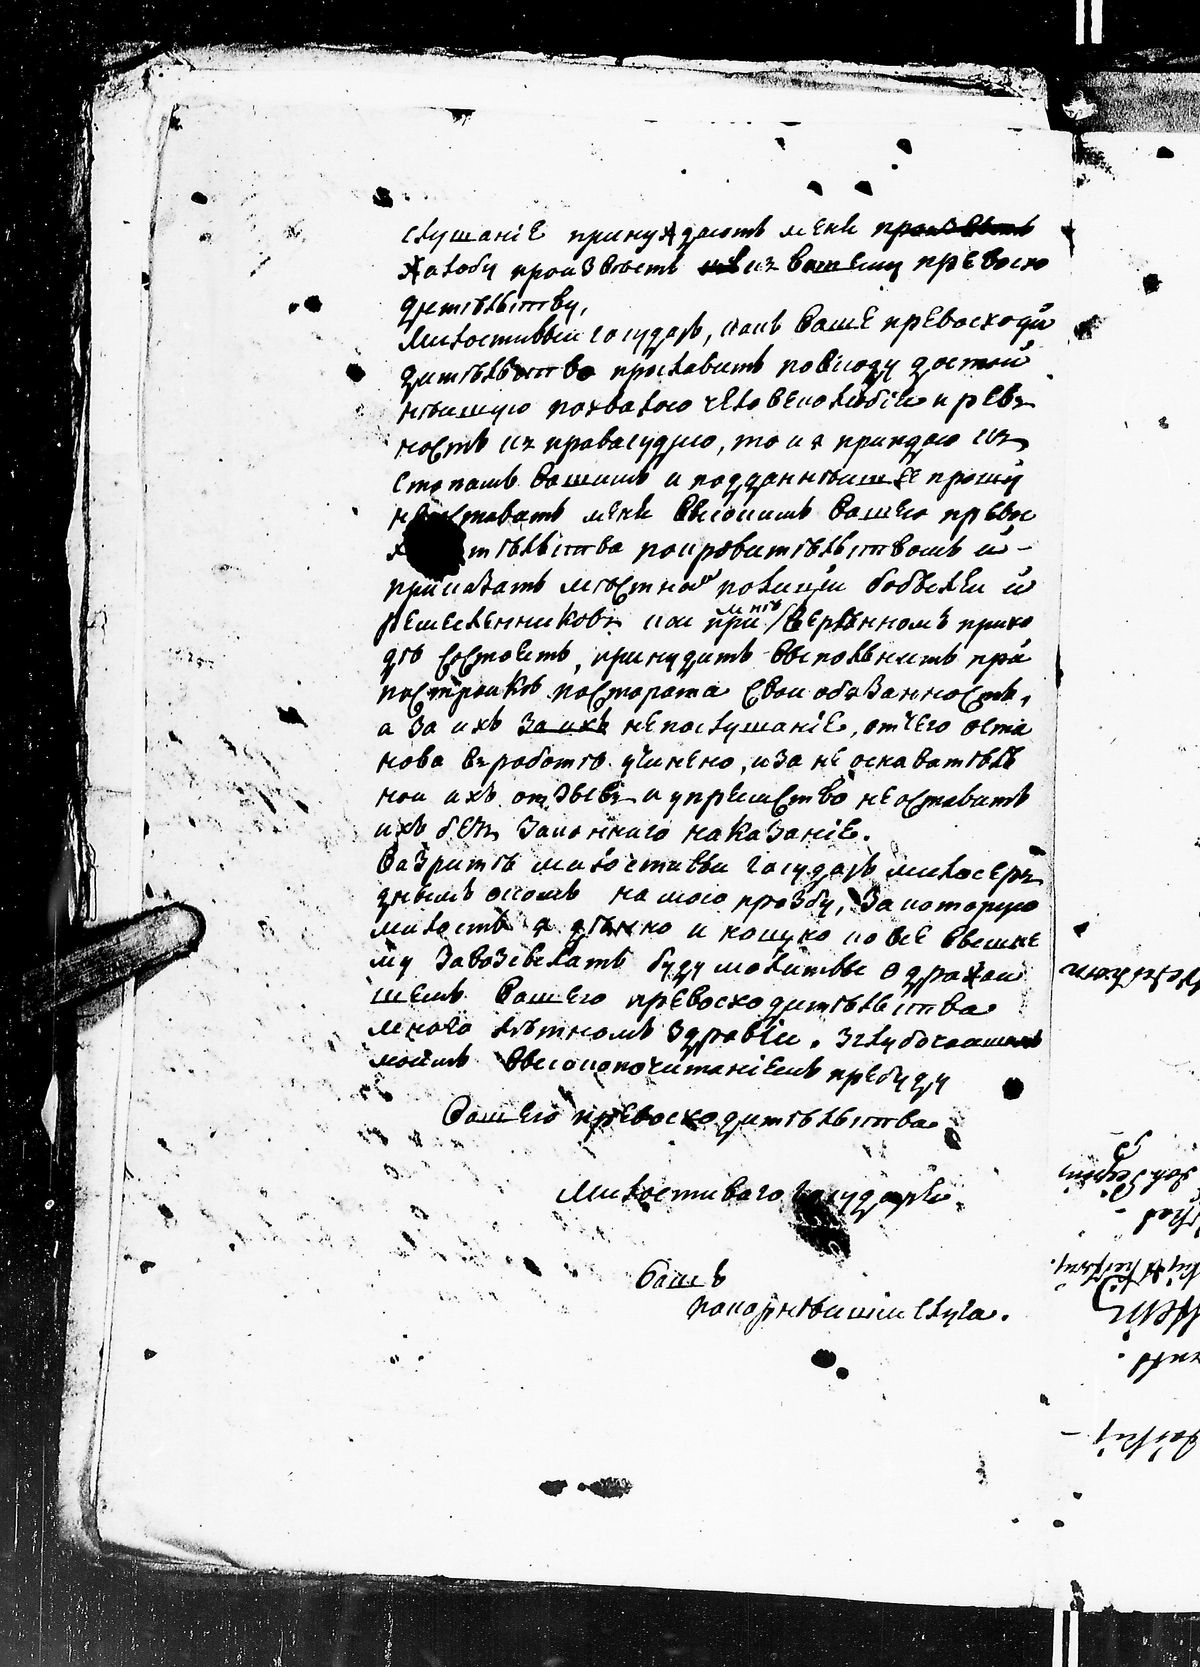 слушаніе принуждаютъ меня произвѣсть
жалобу произвѣсть къ вашему превосхо
дительству.
Милостивый государь, какъ Ваше превосходи
дительство прославитъ повсюду достой
нѣйшую похвалою человѣколюбіи и рев
ность къ правасудию, то и я припадаю къ
стопамъ вашимъ и подданнѣйшее прошу
неоставать меня высокимъ вашего превос
тельства покровительствомъ и
приказать мѣстной полиціи бобылей и
ремесленниковъ кои при мнѣ / верхнномъ прихо
дѣ состоитъ, принудить выпольнить при
построикѣ постората свои обозанность,
а за ихъ за ихъ непослушаніе, отчего оста
нова въ работѣ учинено, и за не оснавательь
нои ихъ отзывъ и упремство неоставить
ихъ безъ законнаго наказаніе.
Вазрите милостивы государь милосерь
днымъ окомъ на мою прозбу, за которую
милость я дѣнно и нощно ко все вышне
му завозсылать буду молитвы о дражаи
шемъ Вашего превосходительства
много лѣтномъ здравіи. Зглубочаишемъ
моимъ высокопочитаніемъ пребуду
Вашего превосходительства
Милостиваго государя
Вашъ
покорнѣишіи слуга.